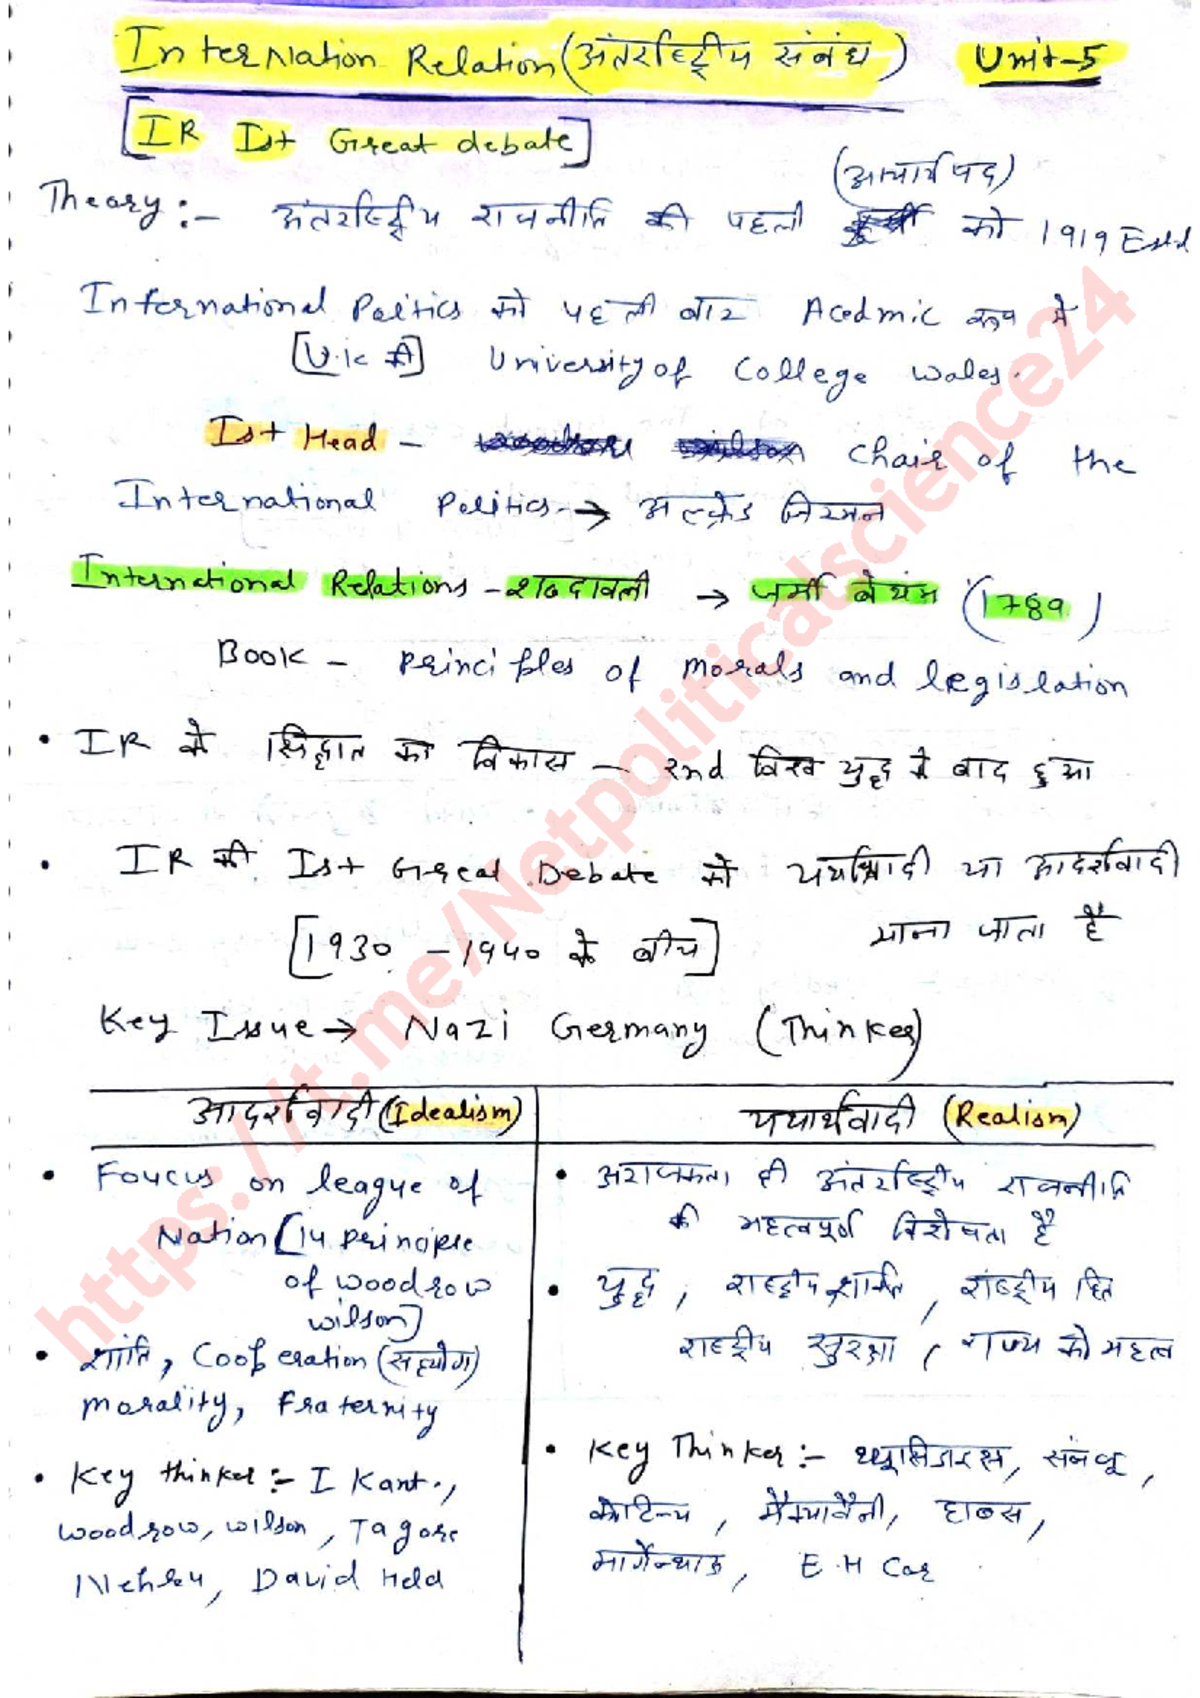 InterNation Relation (अंतर्राष्ट्रीय संबंध) Unit-5
[IR Ist Great debate]
(आचार्य पद)
Theory:- अंतर्राष्ट्रीय राजनीति की पहली को 1919 Estd
International Poltics को पहली बार Acedmic रूप में
[U.K में] University of College Wales.
Ist Head - Chair of the
International Politics → अल्फ्रेड जिमर्न
International Relations - शब्दावली → जर्मी बेंथम (1789)
Book - Principles of Morals and legislation
• IR में सिद्धांत का विकास - 2nd विश्व युद्ध के बाद हुआ
• IR की Ist Great Debate में यथार्थवादी या आदर्शवादी
माना जाता है
[1930 - 1940 के बीच]
Key Issue → Nazi Germany (Thinker)
आदर्शवादी (Idealism)
• Foucus on league of
Nation [14 principle
of woodrow
wilson]
• शांति, Cooperation (सहयोग)
morality, Fraternity
• Key thinker:- I Kant.,
Woodrow, wilson, Tagore
Nehru, David Held
यथार्थवादी (Realism)
• अराजकता ही अंतर्राष्ट्रीय राजनीति
की महत्वपूर्ण विशेषता है
• युद्ध, राष्ट्रीय शक्ति, राष्ट्रीय हित
राष्ट्रीय सुरक्षा, राज्य को महत्व
• Key Thinker:- थ्यूसिडाइडस, सनजू,
कौटिल्य, मैक्यावैली, हाब्स,
मार्गेन्थाऊ, E.H Car
https://t.me/Netpoliticalscience24